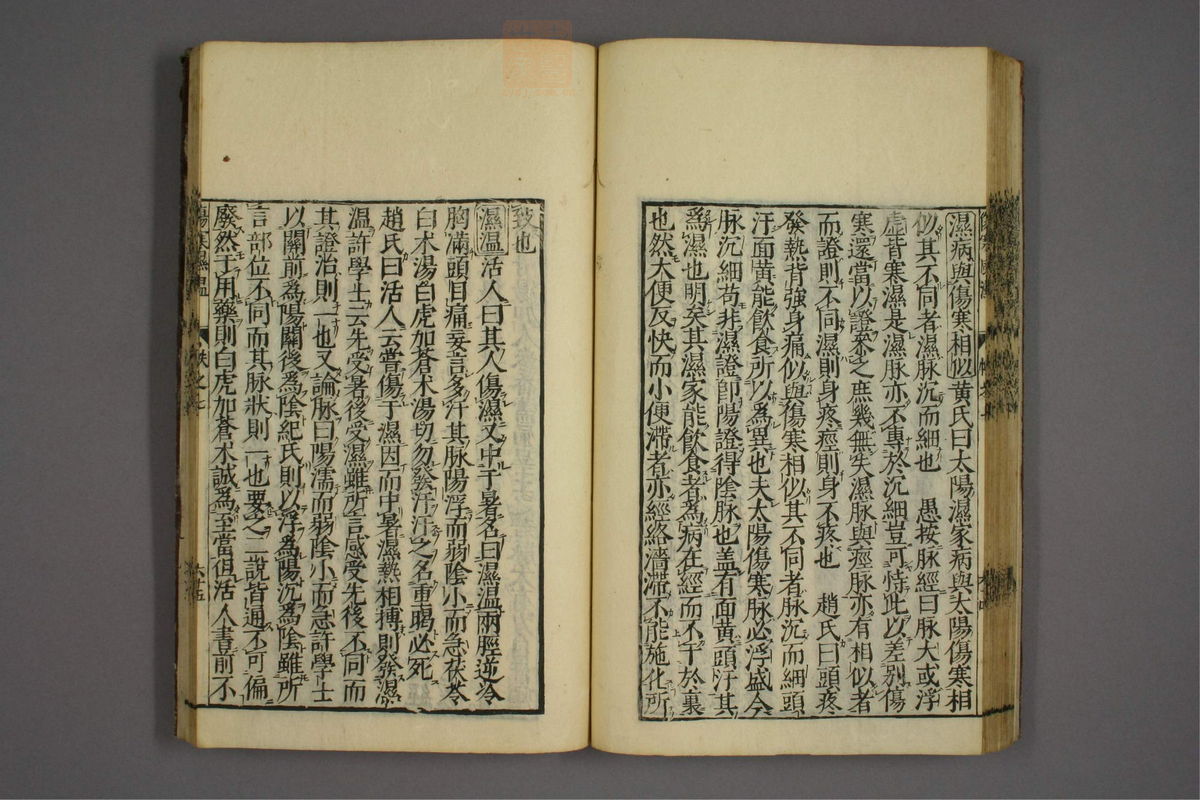 濕病與傷寒相似黃氏曰太陽濕家病與太陽傷寒相
似其不同者濕脉沉而細也　愚按脉經曰脉大或浮
虛皆寒濕是濕脉亦不專於沉細豈可恃此以差别傷
寒還當以證來之庶幾無失濕脉與痙脉亦有相似者
而證則不同濕則身疼痙則身不疼也　趙氏曰頭疼
發熱背強身痛似與傷寒相似其不同者脉沉而細頭
汗面黃能飲食所以為異也夫太陽傷寒脉必浮盛今
脉沉細苟非濕證卽陽證得陰脉也盖有面黃頭汗其
為濕也明矣其濕家能飲食者為病在經而不干於裏
也然大便反快而小便滯者亦經絡濇滯不能施化所
致也
濕溫活人曰其人傷濕又中于暑名曰濕溫兩脛逆冷
胸滿頭目痛妄言多汗其脉陽浮而弱陰小而急茯苓
白术湯白虎加蒼术湯切勿發汗汗之名重暍必死
趙氏曰活人云嘗傷于濕因而中暑濕熱相搏則發濕
溫許學士云先受暑後受濕雖所言感受先後不同而
其證治則一也又論脉曰陽濡而弱陰小而急許學士
以關前為陽關後為陰紀氏則以浮為陽沉為陰雖所
言部位不同而其脉狀則一也要之二說皆通不可偏
廢然于用藥則白虎加蒼术誠為至當但活人書前不
傷寒濕溫
卷之七
六十五